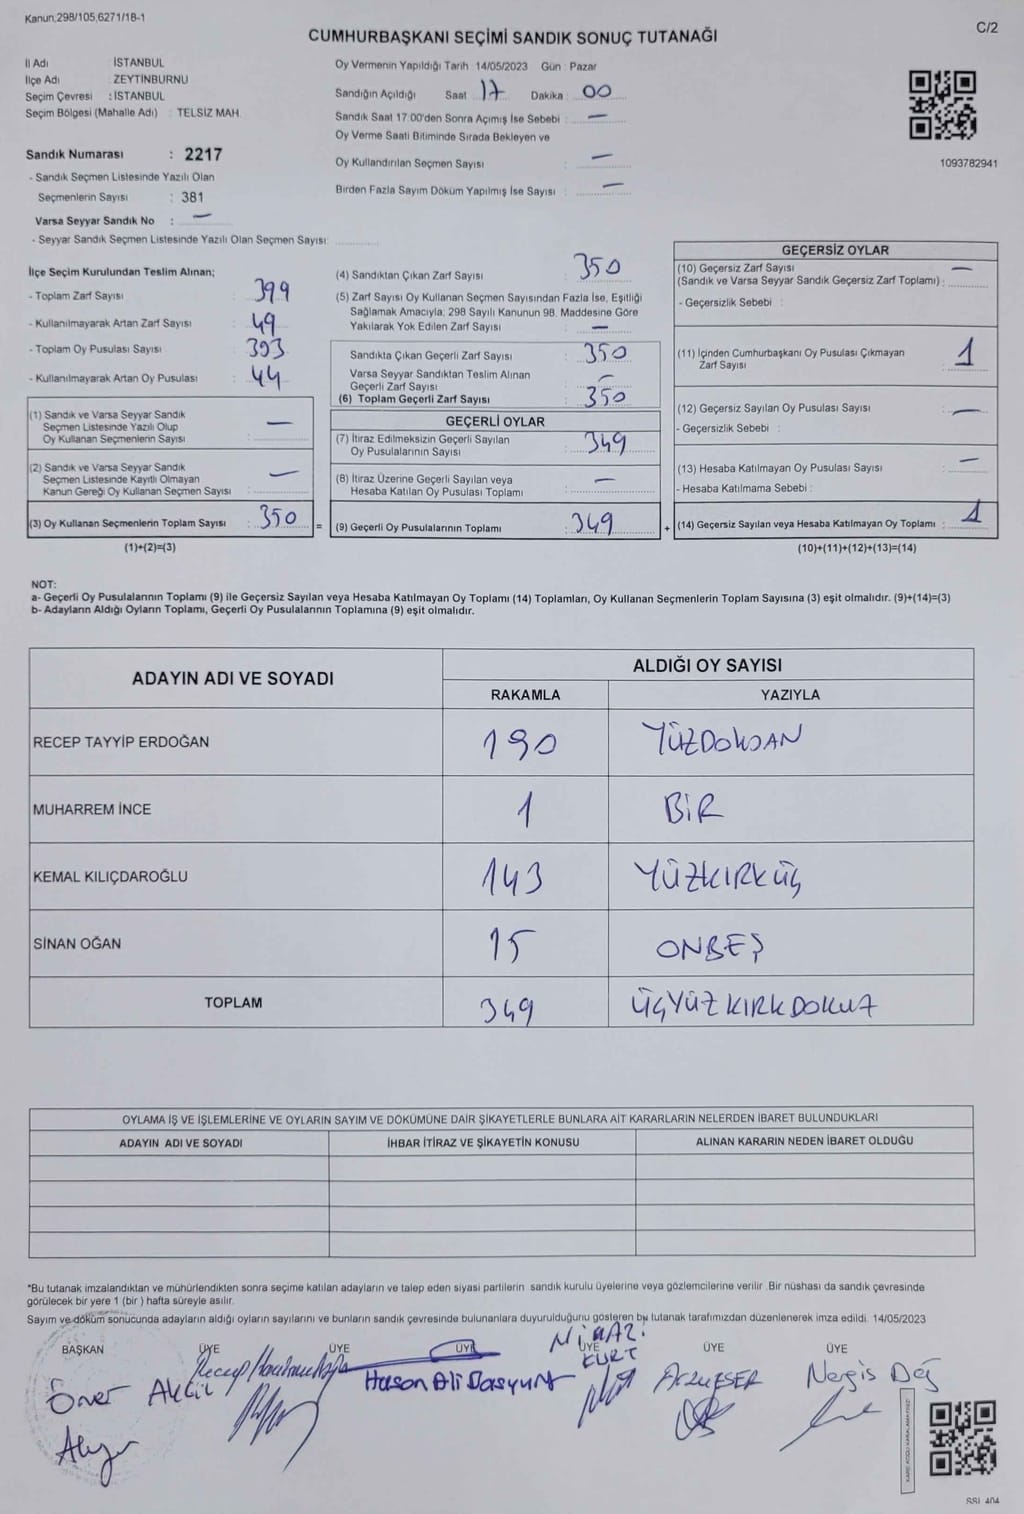 Kanun,298/105,6271/18-1
C/2
CUMHURBAŞKANI SEÇİMİ SANDIK SONUÇ TUTANAĞI
İl Adı : İSTANBUL
İlçe Adı : ZEYTİNBURNU
Seçim Çevresi : İSTANBUL
Seçim Bölgesi (Mahalle Adı) : TELSİZ MAH.
Oy Vermenin Yapıldığı Tarih : 14/05/2023 Gün : Pazar
Sandığın Açıldığı Saat 17 Dakika : 00
Sandık Saat 17:00'den Sonra Açımış İse Sebebi : —
Oy Verme Saati Bitiminde Sırada Bekleyen ve
Oy Kullandırılan Seçmen Sayısı : —
Birden Fazla Sayım Döküm Yapılmış İse Sayısı : —
1093782941
Sandık Numarası : 2217
- Sandık Seçmen Listesinde Yazılı Olan
Seçmenlerin Sayısı : 381
Varsa Seyyar Sandık No : —
- Seyyar Sandık Seçmen Listesinde Yazılı Olan Seçmen Sayısı:
İlçe Seçim Kurulundan Teslim Alınan;
- Toplam Zarf Sayısı : 399
- Kullanılmayarak Artan Zarf Sayısı : 49
- Toplam Oy Pusulası Sayısı : 393
- Kullanılmayarak Artan Oy Pusulası : 44
(1) Sandık ve Varsa Seyyar Sandık
Seçmen Listesinde Yazılı Olup
Oy Kullanan Seçmenlerin Sayısı : —
(2) Sandık ve Varsa Seyyar Sandık
Seçmen Listesinde Kayıtlı Olmayan
Kanun Gereği Oy Kullanan Seçmen Sayısı : —
(3) Oy Kullanan Seçmenlerin Toplam Sayısı : 350
(1)+(2)=(3)
(4) Sandıktan Çıkan Zarf Sayısı : 350
(5) Zarf Sayısı Oy Kullanan Seçmen Sayısından Fazla İse, Eşitliği
Sağlamak Amacıyla; 298 Sayılı Kanunun 98. Maddesine Göre
Yakılarak Yok Edilen Zarf Sayısı : —
Sandıkta Çıkan Geçerli Zarf Sayısı : 350
Varsa Seyyar Sandıktan Teslim Alınan
Geçerli Zarf Sayısı : —
(6) Toplam Geçerli Zarf Sayısı : 350
GEÇERLİ OYLAR
(7) İtiraz Edilmeksizin Geçerli Sayılan
Oy Pusulalarının Sayısı : 349
(8) İtiraz Üzerine Geçerli Sayılan veya
Hesaba Katılan Oy Pusulası Toplamı : —
= (9) Geçerli Oy Pusulalarının Toplamı : 349
GEÇERSİZ OYLAR
(10) Geçersiz Zarf Sayısı
(Sandık ve Varsa Seyyar Sandık Geçersiz Zarf Toplamı) : —
- Geçersizlik Sebebi :
(11) İçinden Cumhurbaşkanı Oy Pusulası Çıkmayan
Zarf Sayısı : 1
(12) Geçersiz Sayılan Oy Pusulası Sayısı : —
- Geçersizlik Sebebi :
(13) Hesaba Katılmayan Oy Pusulası Sayısı : —
- Hesaba Katılmama Sebebi :
+ (14) Geçersiz Sayılan veya Hesaba Katılmayan Oy Toplamı : 1
(10)+(11)+(12)+(13)=(14)
NOT:
a- Geçerli Oy Pusulalarının Toplamı (9) ile Geçersiz Sayılan veya Hesaba Katılmayan Oy Toplamı (14) Toplamları, Oy Kullanan Seçmenlerin Toplam Sayısına (3) eşit olmalıdır. (9)+(14)=(3)
b- Adayların Aldığı Oyların Toplamı, Geçerli Oy Pusulalarının Toplamına (9) eşit olmalıdır.
ADAYIN ADI VE SOYADI
ALDIĞI OY SAYISI
RAKAMLA YAZIYLA
RECEP TAYYİP ERDOĞAN 190 YÜZDOKSAN
MUHARREM İNCE 1 BİR
KEMAL KILIÇDAROĞLU 143 YÜZKIRKÜÇ
SİNAN OĞAN 15 ONBEŞ
TOPLAM 349 ÜÇYÜZKIRKDOKUZ
OYLAMA İŞ VE İŞLEMLERİNE VE OYLARIN SAYIM VE DÖKÜMÜNE DAİR ŞİKAYETLERLE BUNLARA AİT KARARLARIN NELERDEN İBARET BULUNDUKLARI
ADAYIN ADI VE SOYADI İHBAR İTİRAZ VE ŞİKAYETİN KONUSU ALINAN KARARIN NEDEN İBARET OLDUĞU
*Bu tutanak imzalandıktan ve mühürlendikten sonra seçime katılan adayların ve talep eden siyasi partilerin sandık kurulu üyelerine veya gözlemcilerine verilir .Bir nüshası da sandık çevresinde
görülecek bir yere 1 (bir ) hafta süreyle asılır.
Sayım ve döküm sonucunda adayların aldığı oyların sayılarını ve bunların sandık çevresinde bulunanlara duyurulduğunu gösteren bu tutanak tarafımızdan düzenlenerek imza edildi. 14/05/2023
BAŞKAN ÜYE ÜYE ÜYE ÜYE ÜYE ÜYE
Öner
Recep
Hasan Ali
NİYAZİ
KURT
Arzu ESER
Nergis Dağ
SSI 404